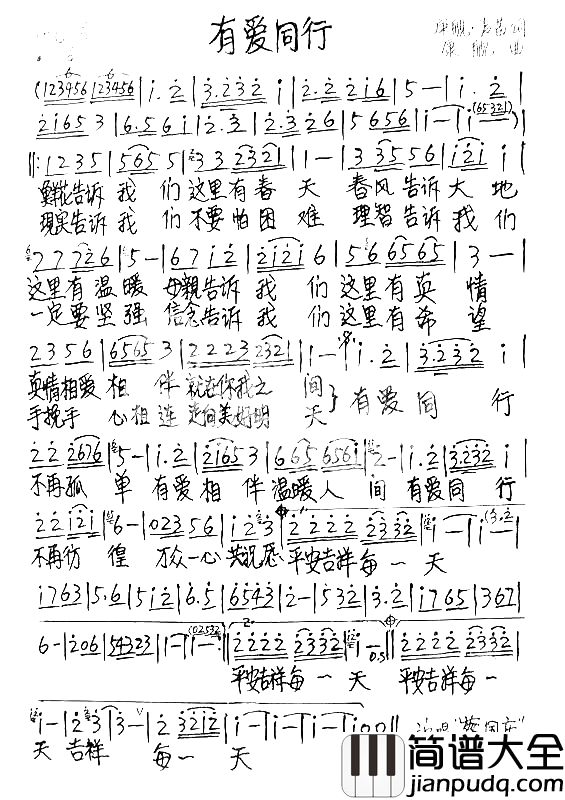 有爱同行
康鹏
词
康鹏 曲
(123456 123456 | i. 2 | 3.232 i | 2.2 2216 | 5 - | i. 2 |
2165 3 | 6.56 i | 2. 3 | 2.326 | 5656 | i - | i (65321) |
|: 1235 | 565 5 | 3 3 2321 | 1 - | 335 56 | i2i |
鲜花告诉 我 们 这里有春 天 春风告诉大 地
现实告诉 我 们 不要怕困 难 理智告诉我 们
77726 | 5 - | 67 i2 | 2i2i 6 | 56 6565 | 3 - |
这里有温 暖 母亲告诉 我 们 这里有真 情
一定要坚 强 信念告诉 我 们 这里有希 望
2356 | 6565 3 | 2223 2321 | 1 - | i. 2 | 3.232 i |
真情相爱 相 伴 就在你我之 间 有 爱 同 行
手挽手 心相连 走向美好明 天
22 2676 | 5 - | i. 2 | 2165 3 | 665 656i | 2 - | i. 2 | 3.232 i |
不再孤 单 有爱 相 伴 温暖人 间 有爱同 行
22 i2i | 6 - | 0235 6 | i2 3 | 2222 2332 | i - | i (3.2 |
不再彷 徨 万众一心 共祝愿 平安吉祥每一 天
i763 | 5.6 | 5i2 | 6.5 | 6543 | 2 - | 532 | 3.2 | i765 | 367 |
6 - | 206 | 54323 | 1 - | 1 - (02532) :| 2222 2332 | i - 0.5 | 2222 2332 |
平安吉祥每 一 天 平安吉祥每一
i - | 2 3 | 3 - ∨ | 2 | 3212 | i - | i - | i - | i00 ||
天 吉祥 每 一 天
简谱大全
jianpudq.com